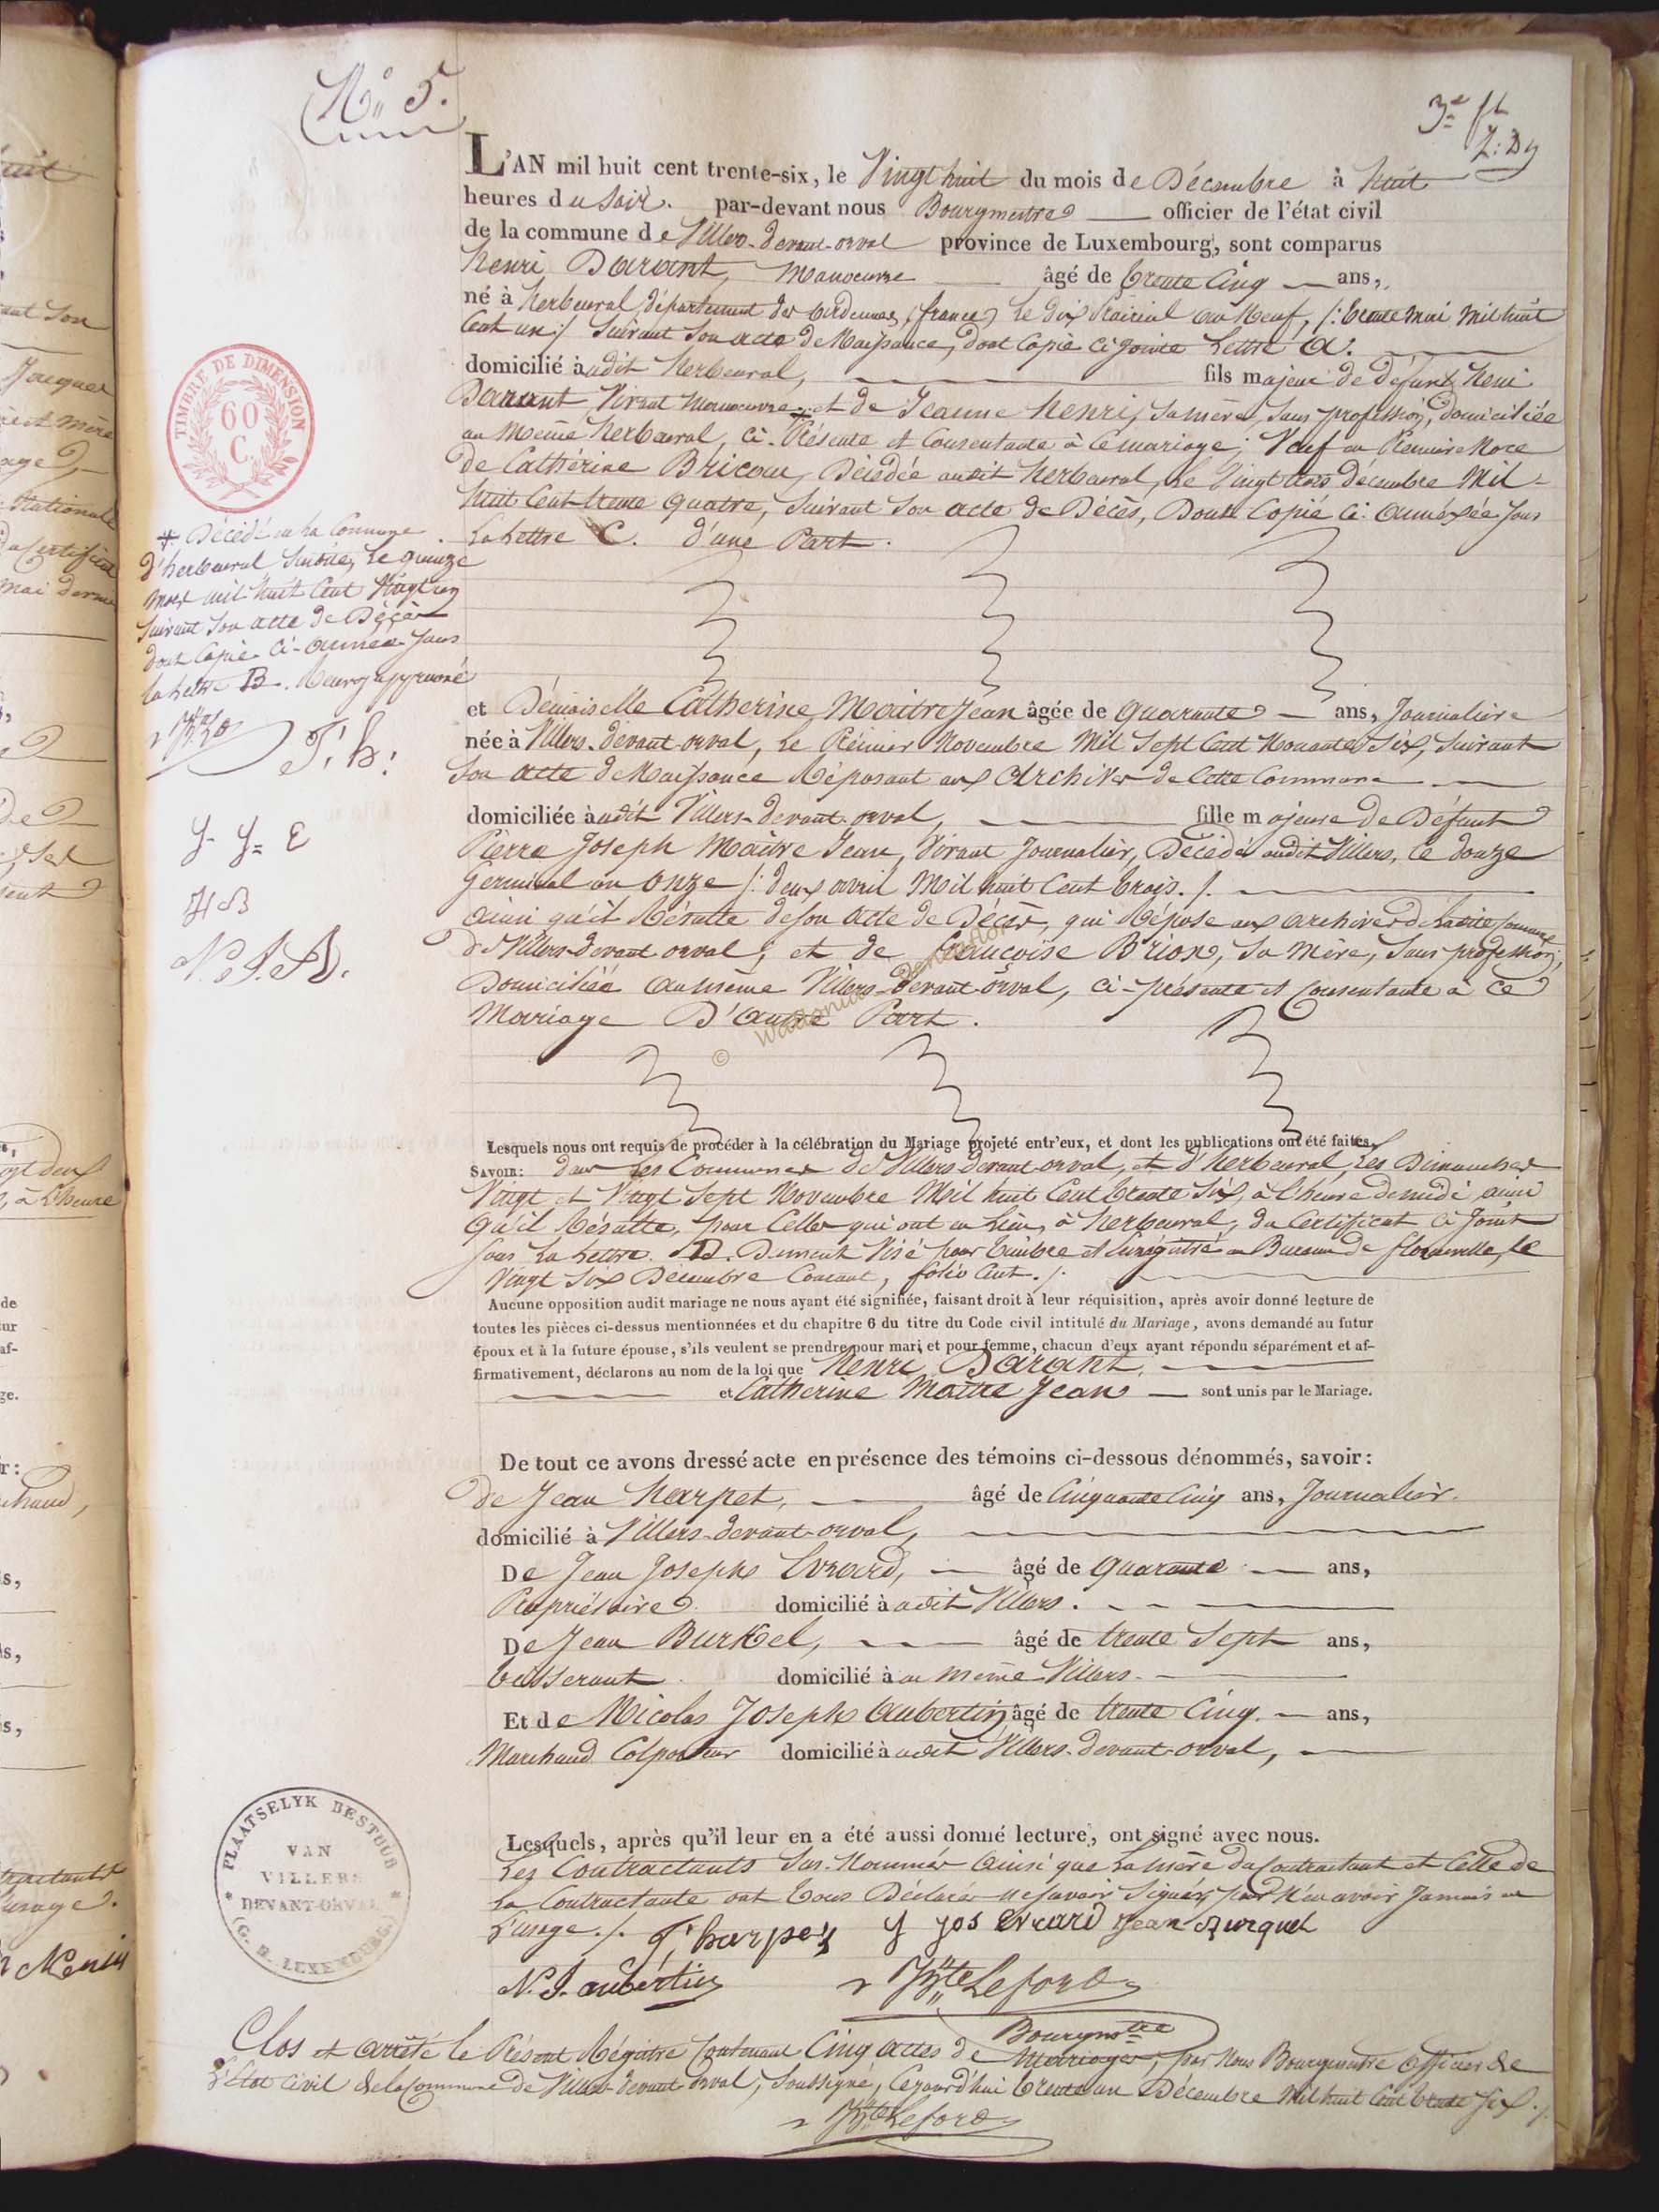 N° 5.
3e ft
L'AN mil huit cent trente-six, le Vingt huit du mois de Décembre à huit
heures du Soir. par-devant nous Bourgmestre officier de l'état civil
de la commune de Villers-devant-orval province de Luxembourg, sont comparus
henri Darant, Manoeuvre âgé de trente Cinq ans,
né à herbeuval, département des ardennes, (france) le dix Prairial an Neuf, /: trente mai mil huit
Cent un :/ Suivant Son acte de Naissance, dont Copie Ci jointe Lettre A.
domicilié à udit herbeuval, fils majeur de défunt henri
Darant, Vivant manoeuvre * et de Jeanne henri, Sa mère, Sans profession, domiciliée
au Meme herbeuval, Ci-Présente et Consentante à Ce mariage; Veuf en Premiere Noce
de Cathérine Bricou, Décédée audit herbeuval, le Vingt trois décembre Mil-
huit Cent trente quatre, Suivant Son acte de Décès, Dont Copie Ci-annéxée Sous
La Lettre C. d'une Part.
TIMBRE DE DIMENSION
60
C.
* Décédé en la Commune
d'herbeuval Susdite, le quinze
mars mil huit Cent Vingt
Suivant Son acte de Décès
dont Copie Ci-annéxée Sous
la Lettre B. Renvoy approuvé
T. h:
J. J. E
J B
N. J. A.
et Démoiselle Catherine Maitre Jean âgée de quarante ans, Journalière
née à Villers-devant-orval, Le Prémier Novembre Mil Sept Cent Nonante Six, Suivant
Son acte de Naissance Réposant aux Archives de Cette Commune
domiciliée à udit Villers-devant-orval, fille majeure de Défunt
Pierre Joseph Maitre Jean, Vivant Journalier, Décédé audit Villers, le douze
germinal an Onze /: deux avril Mil huit Cent trois. /.
ainsi qu'il Résulte de Son acte de Décès, qui Répose aux archives de Ladite Commune
de Villers-devant-orval; et de françoise Brion, Sa Mère, Sans profession,
Domiciliée au même Villers-devant-orval, Ci-présente et Consentante à Ce
Mariage D'Autre Part.
Lesquels nous ont requis de procéder à la célébration du Mariage projeté entr'eux, et dont les publications ont été faites,
SAVOIR: dans Les Communes de Villers devant orval, et d'herbeuval, Les Dimanches
Vingt et Vingt Sept Novembre Mil huit Cent trente Six, à l'heure de midi ainsi
qu'il Résulte, pour Celles qui ont eu Lieu, à herbeuval, du Certificat Ci Joint
Sous La Lettre D. Dument Visé pour timbre et Enrégistré au Bureau de florenville, le
Vingt Six Décembre Courant, folio Cent. /.
Aucune opposition audit mariage ne nous ayant été signifiée, faisant droit à leur réquisition, après avoir donné lecture de
toutes les pièces ci-dessus mentionnées et du chapitre 6 du titre du Code civil intitulé du Mariage, avons demandé au futur
époux et à la future épouse, s'ils veulent se prendre pour mari et pour femme, chacun d'eux ayant répondu séparément et af-
firmativement, déclarons au nom de la loi que Henri Darant,
et Catherine Maitre Jean sont unis par le Mariage.
De tout ce avons dressé acte en présence des témoins ci-dessous dénommés, savoir:
de Jean harpet, âgé de Cinquante Cinq ans, Journalier.
domicilié à Villers-devant-orval,
De Jean Joseph Evrard, âgé de quarante ans,
Propriétaire domicilié à udit Villers.
De Jean Burkel, âgé de trente Sept ans,
tisserant domicilié à u même Villers
Et de Nicolas Joseph Aubertin, âgé de trente Cinq. ans,
Marchand Colporteur domicilié à udit Villers-devant-orval,
Lesquels, après qu'il leur en a été aussi donné lecture, ont signé avec nous.
Les Contractants Sus-Nommés ainsi que La mère du Contractant et Celle de
La Contractante ont tous Déclarés ne Savoir Signer, pour N'en avoir Jamais eu
L'usage. /. T. harpez J jos Evrard Jean Burquel
N. J. aubertin Bte Leford
Bourgmtre
PLAATSELYK BESTUUR
VAN
VILLERS
DEVANT-ORVAL
(G. H. LUXEMBURG)
Clos et arrêté le Présent Régistre Contenant Cinq actes de Mariages, par Nous Bourgmestre Officier de
L'état Civil de la Commune de Villers-devant-orval, Soussigné, Cejourd'hui trente un Décembre Mil huit Cent trente Six. /.
Bte Leford